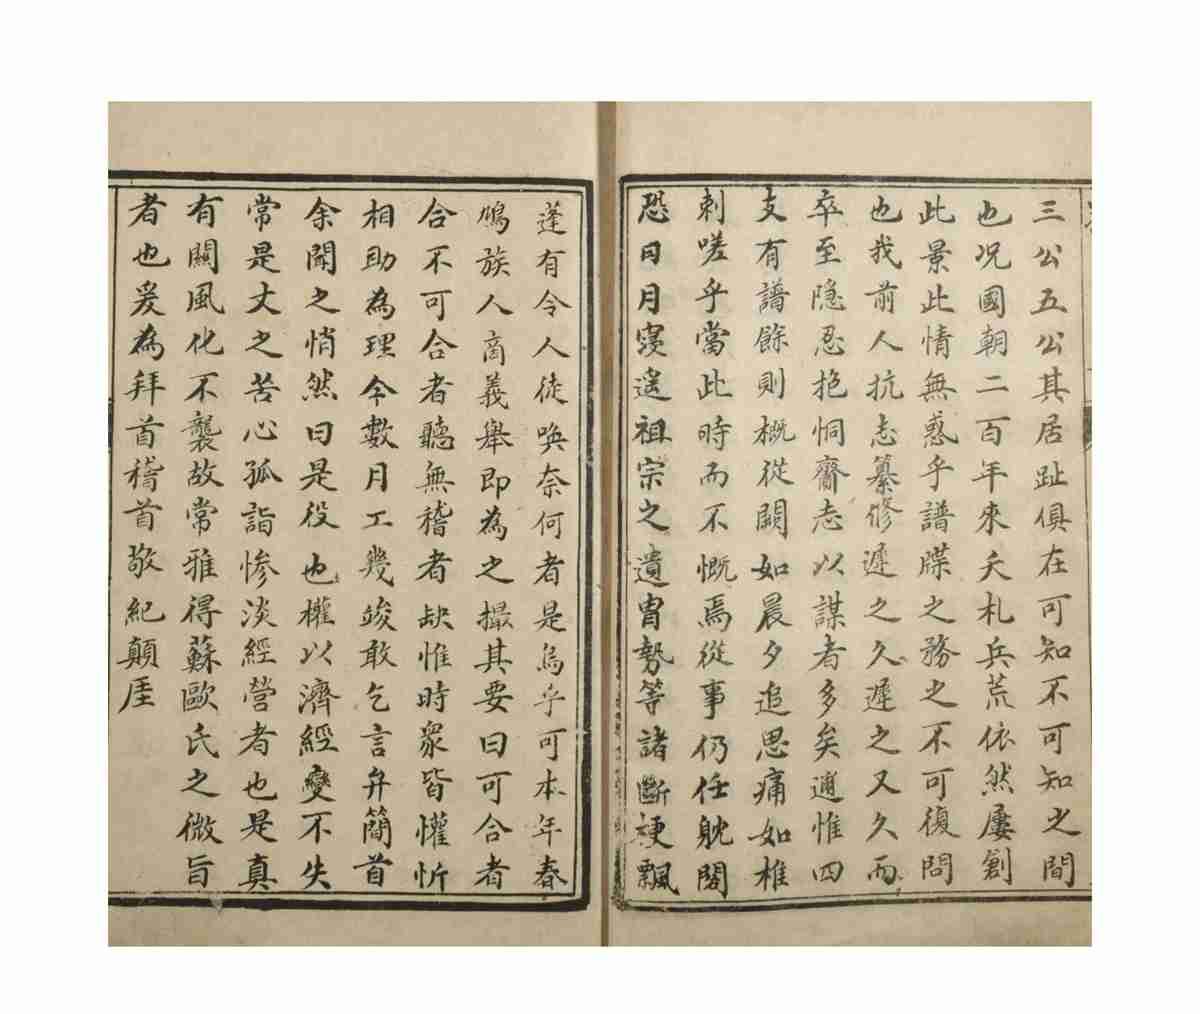 三公五公其居趾俱在可知不可知之間
也况國朝二百年來夭札兵荒依然屢創
此景此情無惑乎譜牒之務之不可復問
也我前人抗志纂修遲之久遲之又久而
卒至隐忍抱恫齎志以謀者多矣迺惟四
支有譜餘則概從闕如晨夕追思痛如椎
刺嗟乎當此時而不慨焉從事仍任躭閣
恐日月寝遙祖宗之遺冑勢等諸斷梗飄
蓬有令人徒喚奈何者是烏乎可本年春
鳩族人商義舉即為之撮其要曰可合者
合不可合者聽無稽者缺惟時衆皆懽忻
相助為理今數月工幾竣敢乞言弁簡首
余聞之悄然曰是役也權以濟經變不失
常是丈之苦心孤詣惨淡經营者也是真
有關風化不襲故常雅得蘇歐氏之微旨
者也爰為拜首稽首敬紀顛厓